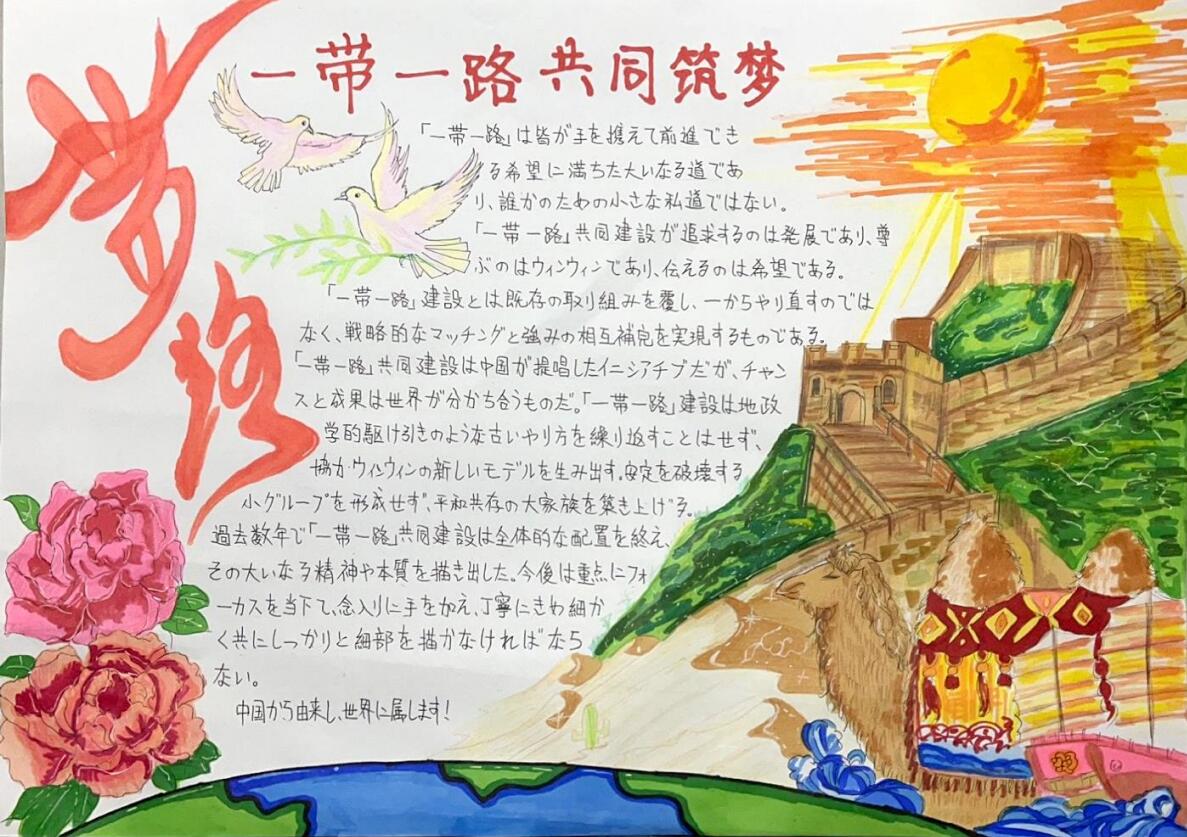 一带一路共同筑梦
带
路
「一帯一路」は皆が手を携えて前進でき
る希望に満ちた大いなる道であ
り、誰かのための小さな私道ではない。
「一帯一路」共同建設が追求するのは発展であり、尊
ぶのはウィンウィンであり、伝えるのは希望である。
「一帯一路」建設とは既存の取り組みを覆し、一からやり直すのでは
なく、戦略的なマッチングと強みの相互補完を実現するものである。
「一帯一路」共同建設は中国が提唱したイニシアチブだが、チャン
スと成果は世界が分かち合うものだ。「一帯一路」建設は地政
学的駆け引きのような古いやり方を繰り返すことはせず、
協力・ウィンウィンの新しいモデルを生み出す。安定を破壊する
小グループを形成せず、平和共存の大家族を築き上げる。
過去数年で「一帯一路」共同建設は全体的な配置を終え、
その大いなる精神や本質を描き出した。今後は重点にフォ
ーカスを当下て、念入りに手を加え、丁寧にきわ細か
く共にしっかりと細部を描かなければなら
ない。
中国から由来し、世界に属します！